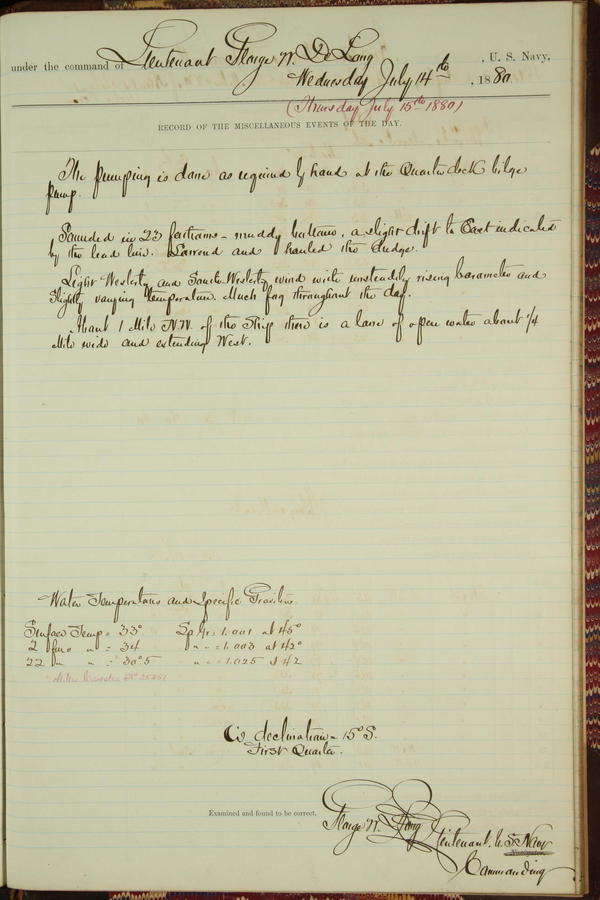 under the command of Lieutenant George W. De Long, U. S. Navy,
Wednesday July 14th, 1880
(Thursday July 15th 1880)
RECORD OF THE MISCELLANEOUS EVENTS OF THE DAY.
The pumping is done as required by hand at the Quarter deck bilge
pump.
Sounded in 23 fathoms - muddy bottom, a slight drift to East indicated
by the lead line. Lowered and hauled the dredge.
Light Westerly and South Westerly wind with unsteadily rising barometer and
slightly varying temperature. Much fog throughout the day.
About 1 Mile N.W. of the Ship there is a lane of open water about 1/4
Mile wide and extending West.
Water Temperatures and Specific Gravities
Surface Temp = 33° Sp. Gr. = 1.001 at 45°
2 fms " = 34 " " = 1.003 at 42°
22 " " = 30°5 " " = 1.025 at 42
☾'s declination = 15° S.
First Quarter.
Examined and found to be correct.
George W. De Long Lieutenant U. S. Navy
Commanding